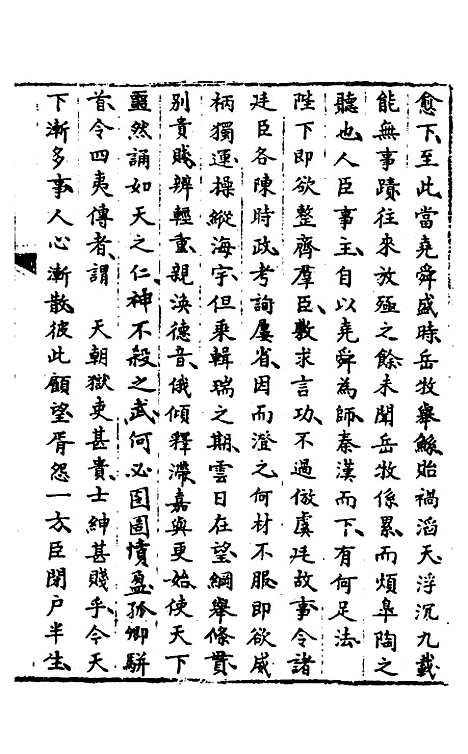 愈下至此當堯舜盛時岳牧舉鯀始禍滔天浮沉九載
能無事蹟往來放殛之餘未聞岳牧係累而煩臯陶之
聽也人臣事主自以堯舜為師秦漢而下有何足法
陛下即欲整齊羣臣敷求言功不過倣虞廷故事令諸
廷臣各陳時政考詢屢省因而澄之何材不服即欲威
柄獨運操縱海宇但乘輯瑞之期雲日在望綱舉條貫
別貴賤辨輕重親渙德音俄傾釋滯嘉與更始使天下
翕然誦如天之仁神不殺之武何必囹圄墳盈孤卿駢
首令四夷傳者謂　天朝獄吏甚貴士紳甚賤乎今天
下漸多事人心漸散彼此顧望胥怨一方臣閉户半生